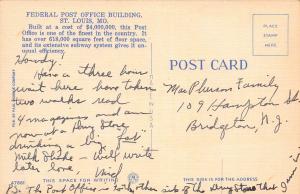 FEDERAL POST OFFICE BUILDING,
ST. LOUIS, MO.
Built at a cost of $4,000,000, this Post
Office is one of the finest in the country. It
has over 618,000 square feet of floor space,
and its extensive subway system gives it un-
usual efficiency.
PLACE
STAMP
HERE
POST CARD
Howdy!
Have a three hour
wait here have taken
two walks read
4 magazines and am
now at a Drug Store
drinking a big "fat"
Milk Shake - Will write
later love
MacPherson Family
109 Hampton
Bridgeton, N.J.
THIS SPACE FOR WRITING
P.S. The Post Office is
the Drug Store that